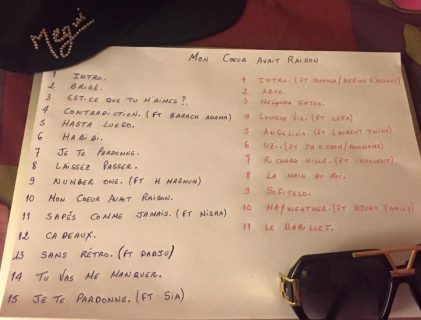 Megui
MON COEUR AVAIT RAISON
1 INTRO.
2 BRISÉ.
3 EST-CE QUE TU M'AIMES ?
4 CONTRADICTION. (FT BARACK ADAMA)
5 HASTA LUEGO.
6 HABIBI.
7 JE TE PARDONNE.
8 LAISSEZ PASSER.
9 NUMBER ONE. (FT H MAGNUM)
10 MON COEUR AVAIT RAISON.
11 SAPÉS COMME JAMAIS. (FT NISKA)
12 CADEAUX.
13 SANS RÉTRO. (FT DADJU)
14 TU VAS ME MANQUER.
15 JE TE PARDONNE. (FT SIA)
1 INTRO. (FT
2 ABCD.
3 MELUNDA GATES.
4 LONGUE VIE. (FT LEFA)
5 ANGELINA. (FT LAURENT
6 UZI. (FT
7 RICHARD MILLE. (FT
8 LA MAIN DU ROI.
9 SOFITELO.
10 MAYWEATHER. (FT DJUNA FAMILY)
11 LE BARILLET.